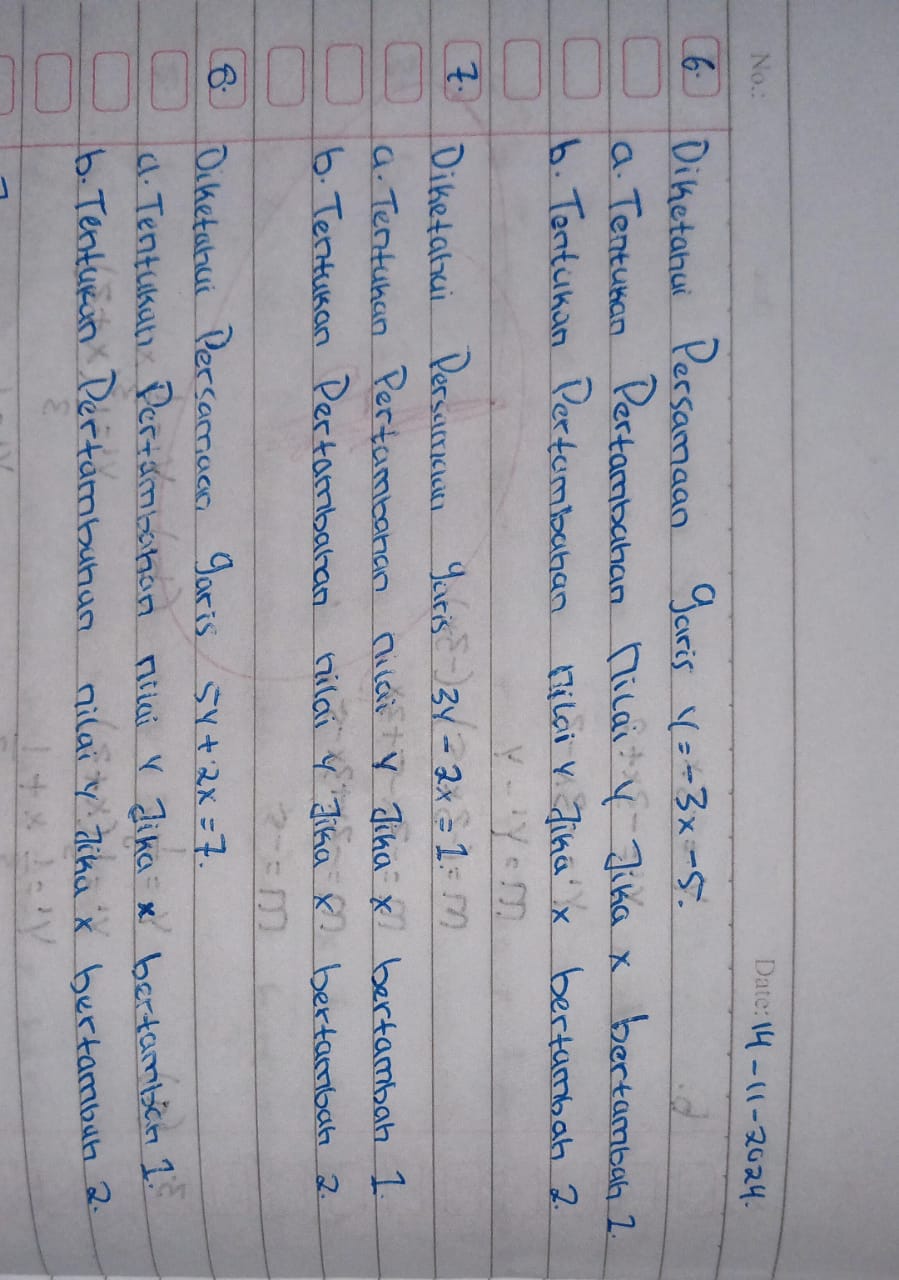 No.:
Date: 14-11-2024.
6. Diketahui Persamaan garis y = -3x - 5.
a. Tentukan Pertambahan nilai y Jika x bertambah 1.
b. Tentukan Pertambahan nilai y Jika x bertambah 2.
7. Diketahui Persamaan garis 3y - 2x = 1.
a. Tentukan Pertambahan nilai y Jika x bertambah 1.
b. Tentukan Pertambahan nilai y Jika x bertambah 2.
8. Diketahui Persamaan garis 5y + 2x = 7.
a. Tentukan Pertambahan nilai y Jika x bertambah 1.
b. Tentukan Pertambahan nilai y Jika x bertambah 2.